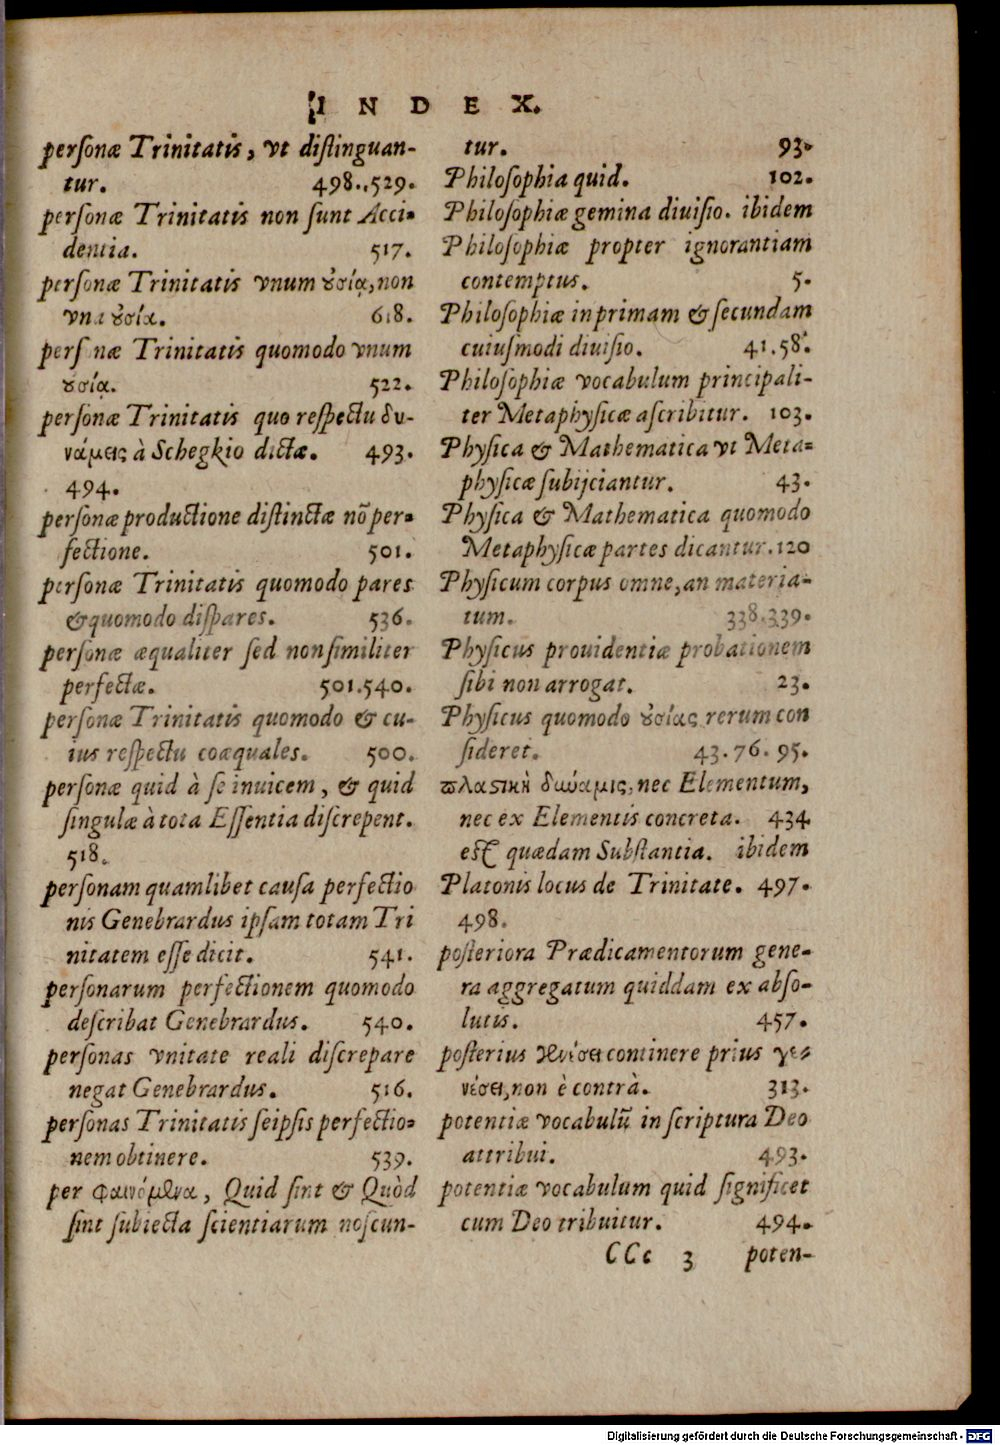 INDEX.
personæ Trinitatis, vt distinguan-
tur. 498.,529.
personæ Trinitatis non sunt Acci-
dentia. 517.
personæ Trinitatis vnum ȣσίᾳ, non
vna ȣσία. 618.
pers næ Trinitatis quomodo vnum
ȣσίᾳ. 522.
personæ Trinitatis quo respectu δυ-
νάμεις à Schegkio dictæ. 493.
494.
personæ productione distinctæ nõ per-
fectione. 501.
personæ Trinitatis quomodo pares
& quomodo dispares. 536.
personæ æqualiter sed non similiter
perfectæ. 501.540.
personæ Trinitatis quomodo & cu-
ius respectu coæquales. 500.
personæ quid à se inuicem, & quid
singulæ à tota Essentia discrepent.
518.
personam quamlibet causa perfectio
nis Genebrardus ipsam totam Tri
nitatem esse dicit. 541.
personarum perfectionem quomodo
describat Genebrardus. 540.
personas vnitate reali discrepare
negat Genebrardus. 516.
personas Trinitatis seipsis perfectio-
nem obtinere. 539.
per φαινόμενα, Quid sint & Quòd
sint subiecta scientiarum noscun-
tur. 93.
Philosophia quid. 102.
Philosophiæ gemina diuisio. ibidem
Philosophiæ propter ignorantiam
contemptus. 5.
Philosophiæ in primam & secundam
cuiusmodi diuisio. 41.58.
Philosophiæ vocabulum principali-
ter Metaphysicæ ascribitur. 103.
Physica & Mathematica vt Meta-
physicæ subijciantur. 43.
Physica & Mathematica quomodo
Metaphysicæ partes dicantur. 120
Physicum corpus omne, an materia-
tum. 338.339.
Physicus prouidentiæ probationem
sibi non arrogat. 23.
Physicus quomodo ȣσίας rerum con
sideret. 43. 76. 95.
πλαστικὴ δύναμις, nec Elementum,
nec ex Elementis concreta. 434
est quædam Substantia. ibidem
Platonis locus de Trinitate. 497.
498.
posteriora Prædicamentorum gene-
ra aggregatum quiddam ex abso-
lutis. 457.
posterius γενέσει continere prius γε-
νέσει, non è contrà. 313.
potentiæ vocabulũ in scriptura Deo
attribui. 493.
potentiæ vocabulum quid significet
cum Deo tribuitur. 494.
CCc 3 poten-
Digitalisierung gefördert durch die Deutsche Forschungsgemeinschaft - DFG